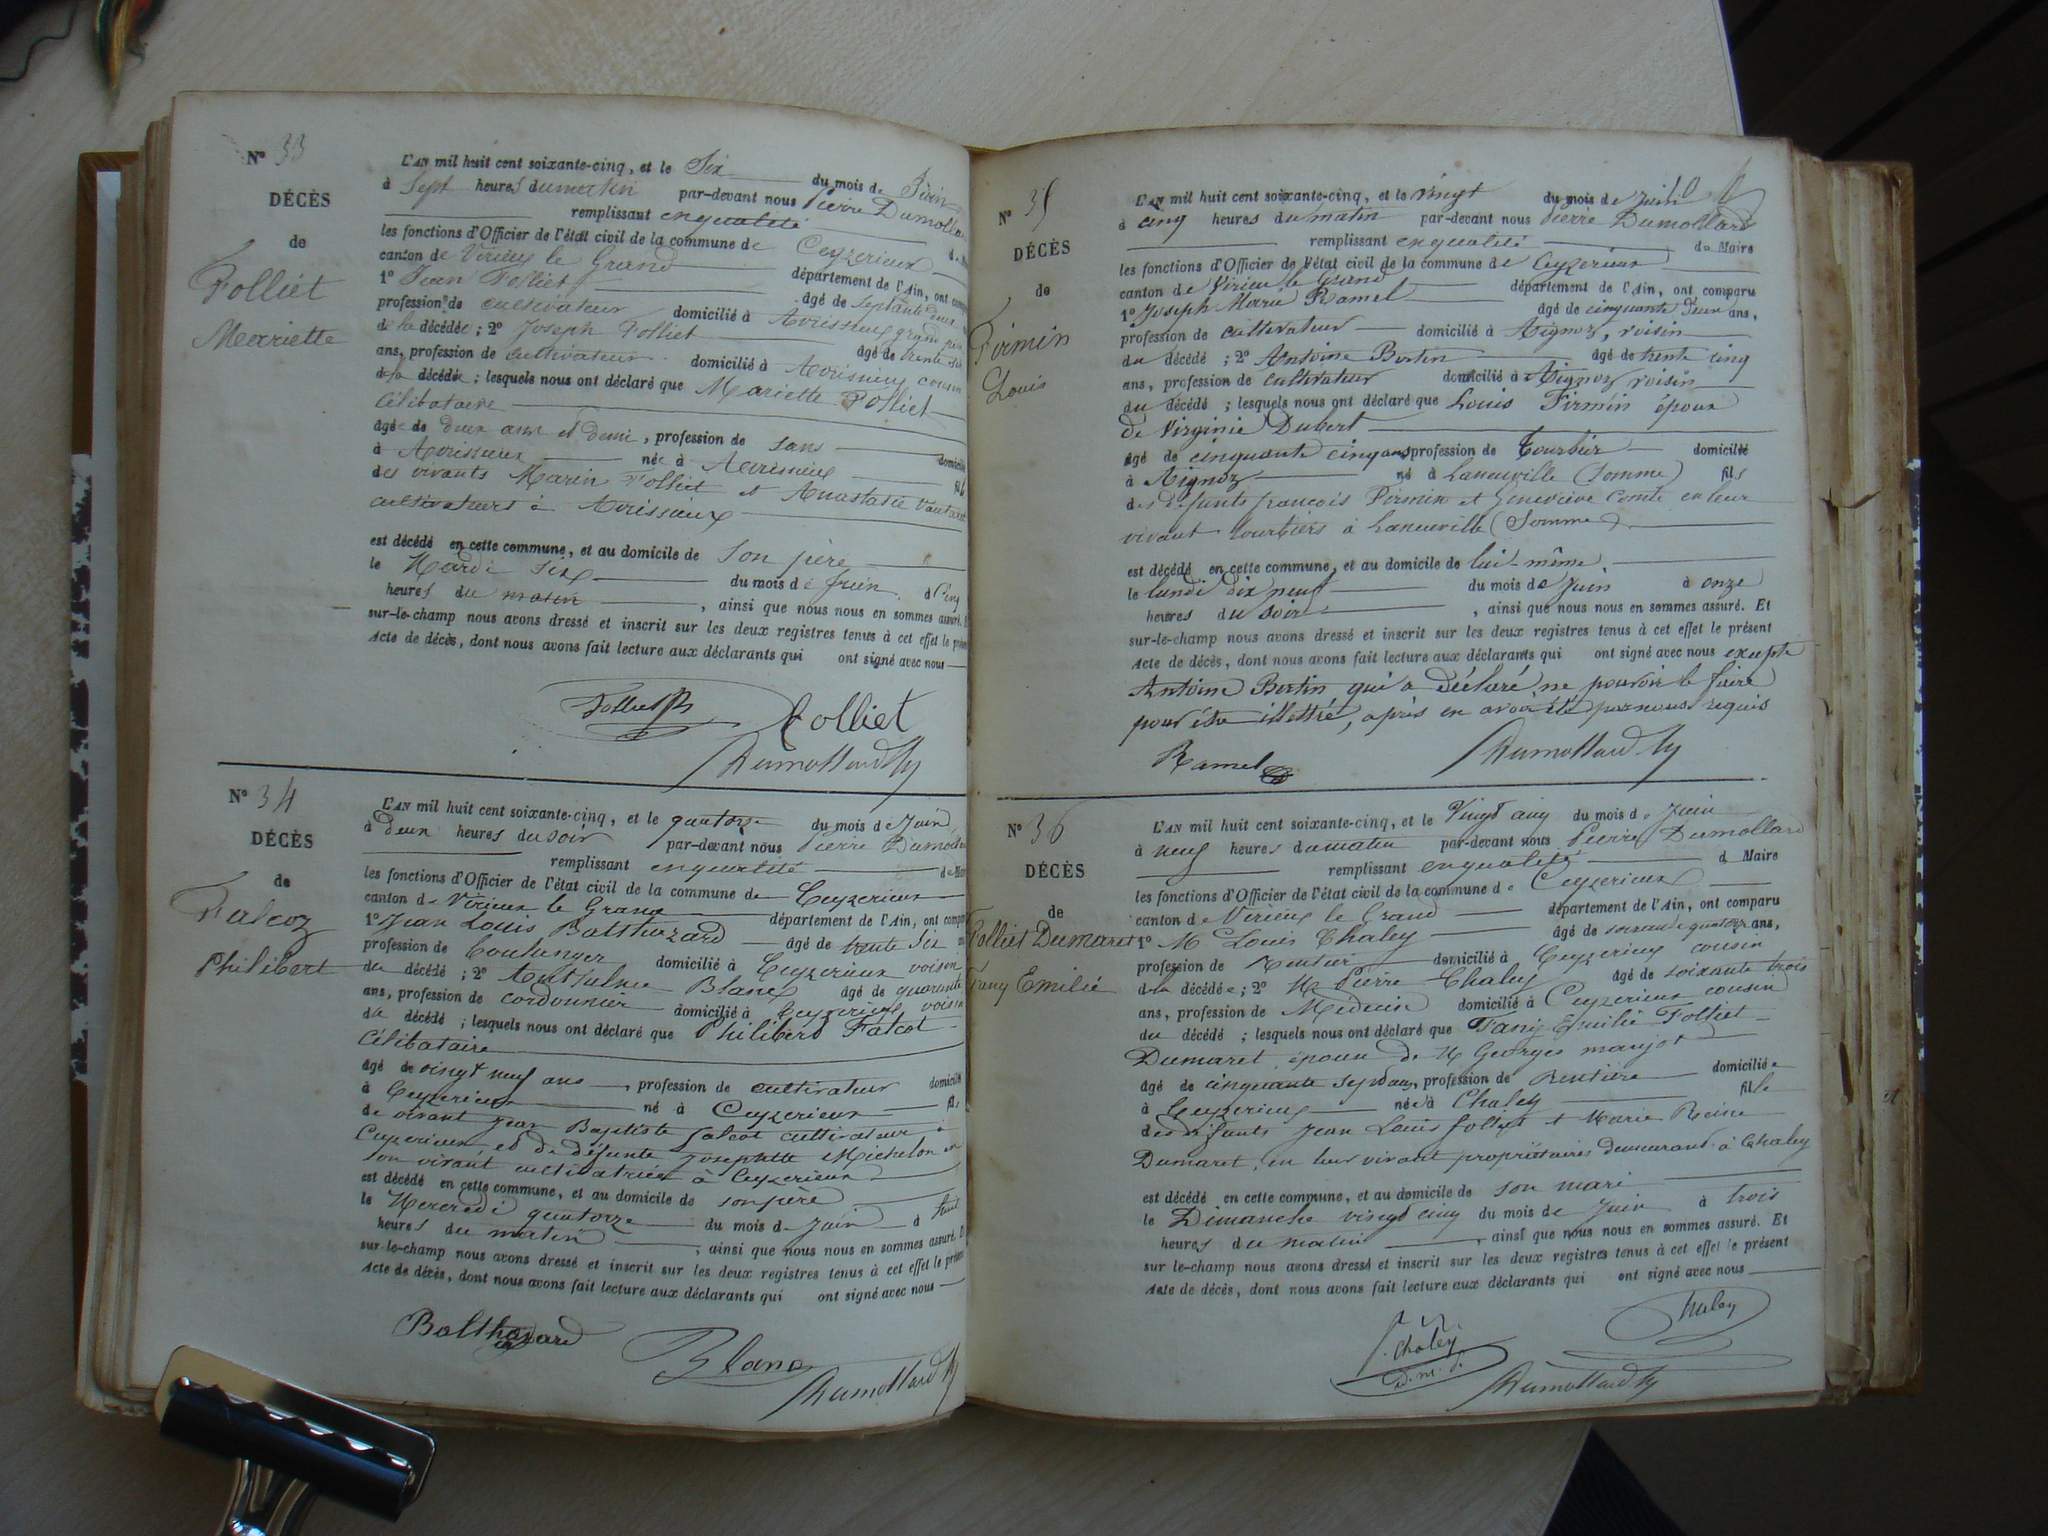 N° 33
DÉCÈS
de
Folliet
Mariette
L'AN mil huit cent soixante-cinq, et le Six du mois de Juin
à Sept heures du matin par-devant nous Pierre Dumollard
remplissant en qualité
les fonctions d'Officier de l'état civil de la commune de Ceyzerieux
canton de Virieux le Grand département de l'Ain, ont comparu
1° Jean Folliet âgé de septante deux
profession de cultivateur domicilié à Avrissieux grand père
de la décédée ; 2° Joseph Folliet âgé de trente six
ans, profession de cultivateur domicilié à Avrissieux cousin
de la décédée ; lesquels nous ont déclaré que Mariette Folliet
Célibataire
âgée de deux ans et demi, profession de sans domicilié
à Avrissieux née à Avrissieux fille
des vivants Marin Folliet et Anastasie Vautaret
cultivateurs à Avrissieux
est décédé en cette commune, et au domicile de son père
le Mardi six du mois de Juin à Cinq
heures du matin, ainsi que nous nous en sommes assuré. Et
sur-le-champ nous avons dressé et inscrit sur les deux registres tenus à cet effet le présent
Acte de décès, dont nous avons fait lecture aux déclarants qui ont signé avec nous
Folliet
Folliet
Dumollard
N° 34
DÉCÈS
de
Falcoz
Philibert
L'AN mil huit cent soixante-cinq, et le quatorze du mois de Juin
à deux heures du soir par-devant nous Pierre Dumollard
remplissant en qualité de Maire
les fonctions d'Officier de l'état civil de la commune de Ceyzerieux
canton de Virieux le Grand département de l'Ain, ont comparu
1° Jean Louis Balthazard âgé de trente six ans
profession de boulanger domicilié à Ceyzerieux voisin
du décédé ; 2° Anthelme Blanc âgé de quarante
ans, profession de cordonnier domicilié à Ceyzerieux voisin
du décédé ; lesquels nous ont déclaré que Philibert Falcot
Célibataire
âgé de vingt neuf ans, profession de cultivateur domicilié
à Ceyzerieux né à Ceyzerieux fils
de vivant Jean Baptiste Falcot cultivateur à
Ceyzerieux et de défunte Josephte Michelon en
son vivant cultivatrice à Ceyzerieux
est décédé en cette commune, et au domicile de son père
le Mercredi quatorze du mois de Juin à huit
heures du matin, ainsi que nous nous en sommes assuré. Et
sur-le-champ nous avons dressé et inscrit sur les deux registres tenus à cet effet le présent
Acte de décès, dont nous avons fait lecture aux déclarants qui ont signé avec nous
Balthazard
Blanc
Dumollard
N° 35
DÉCÈS
de
Firmin
Louis
L'AN mil huit cent soixante-cinq, et le vingt du mois de juin
à cinq heures du matin par-devant nous Pierre Dumollard
remplissant en qualité du Maire
les fonctions d'Officier de l'état civil de la commune de Ceyzerieux
canton de Virieu le Grand département de l'Ain, ont comparu
1° Joseph Marie Ramel âgé de cinquante deux ans,
profession de cultivateur domicilié à Aignoz, voisin
du décédé ; 2° Antoine Bertin âgé de trente cinq
ans, profession de cultivateur domicilié à Aignoz voisin
du décédé ; lesquels nous ont déclaré que Louis Firmin époux
de Virginie Dubert
âgé de cinquante cinq ans profession de Tourbier domicilié
à Aignoz né à Laneuville (Somme) fils
des défunts françois Firmin et Geneviève Comte en leur
vivant tourbiers à Laneuville (Somme)
est décédé en cette commune, et au domicile de lui-même.
le lundi dix neuf du mois de Juin à onze
heures du soir, ainsi que nous nous en sommes assuré. Et
sur-le-champ nous avons dressé et inscrit sur les deux registres tenus à cet effet le présent
Acte de décès, dont nous avons fait lecture aux déclarants qui ont signé avec nous excepté
Antoine Bertin qui a déclaré ne pouvoir le faire
pour être illettré, après en avoir été par nous requis
Ramel
Dumollard
N° 36
DÉCÈS
de
Folliet Dumaret
Fany Emilie
L'AN mil huit cent soixante-cinq, et le Vingt cinq du mois de Juin
à neuf heures du matin par-devant nous Pierre Dumollard
remplissant en qualité d Maire
les fonctions d'Officier de l'état civil de la commune de Ceyzerieux
canton de Virieux le Grand département de l'Ain, ont comparu
1° M Louis Chaley âgé de soixante quatorze ans,
profession de Rentier domicilié à Ceyzerieux cousin
de la décédée ; 2° M Pierre Chaley âgé de soixante trois
ans, profession de Médecin domicilié à Ceyzerieux cousin
du décédé ; lesquels nous ont déclaré que Fany Emilie Folliet
Dumaret épouse de M Georges maujot
âgé de cinquante sept ans, profession de Rentière domiciliée
à Ceyzerieux née à Chaley fille
des défunts Jean Louis folliet et Marie Reine
Dumaret, en leur vivant propriétaires demeurant à Chaley
est décédé en cette commune, et au domicile de son mari
le Dimanche vingt cinq du mois de Juin à trois
heures du matin, ainsi que nous nous en sommes assuré. Et
sur-le-champ nous avons dressé et inscrit sur les deux registres tenus à cet effet le présent
Acte de décès, dont nous avons fait lecture aux déclarants qui ont signé avec nous
Chaley
Chaley
d.m.
Dumollard